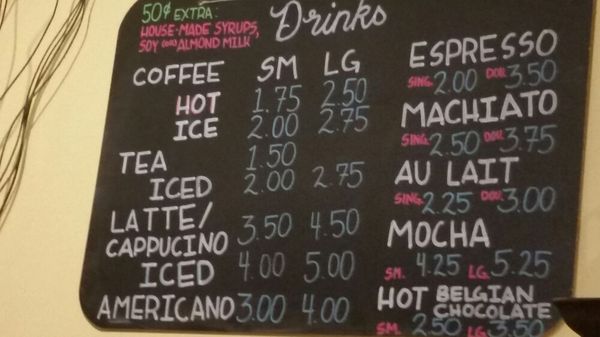 50¢ EXTRA:
HOUSE-MADE SYRUPS,
SOY (OR) ALMOND MILK
Drinks
COFFEE SM LG
HOT 1.75 2.50
ICE 2.00 2.75
TEA 1.50
ICED 2.00 2.75
LATTE/
CAPPUCINO 3.50 4.50
ICED 4.00 5.00
AMERICANO 3.00 4.00
ESPRESSO
SING. 2.00 DOU. 3.50
MACHIATO
SING. 2.50 DOU. 3.75
AU LAIT
SING. 2.25 DOU. 3.00
MOCHA
SM. 4.25 LG. 5.25
HOT BELGIAN
CHOCOLATE
SM. 2.50 LG. 3.50